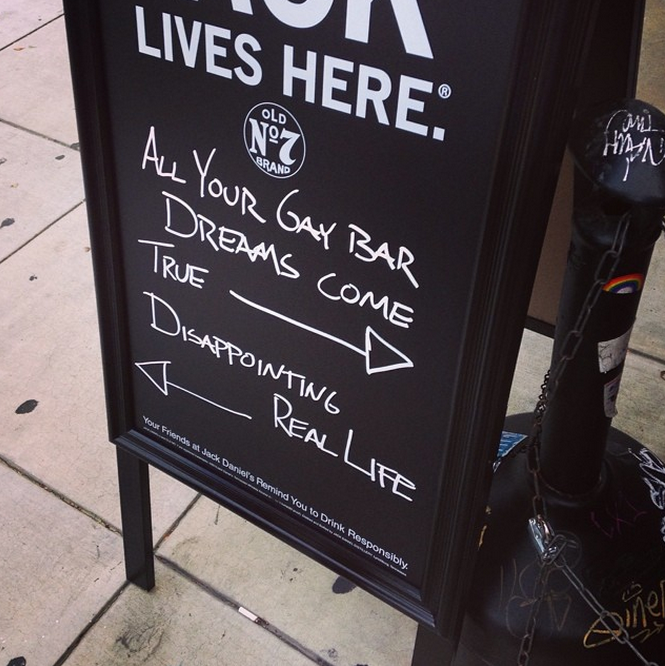 LIVES HERE.®
OLD
No7
BRAND
ALL YOUR GAY BAR
DREAMS COME
TRUE
DISAPPOINTING
REAL LIFE
Your Friends at Jack Daniel's Remind You to Drink Responsibly.